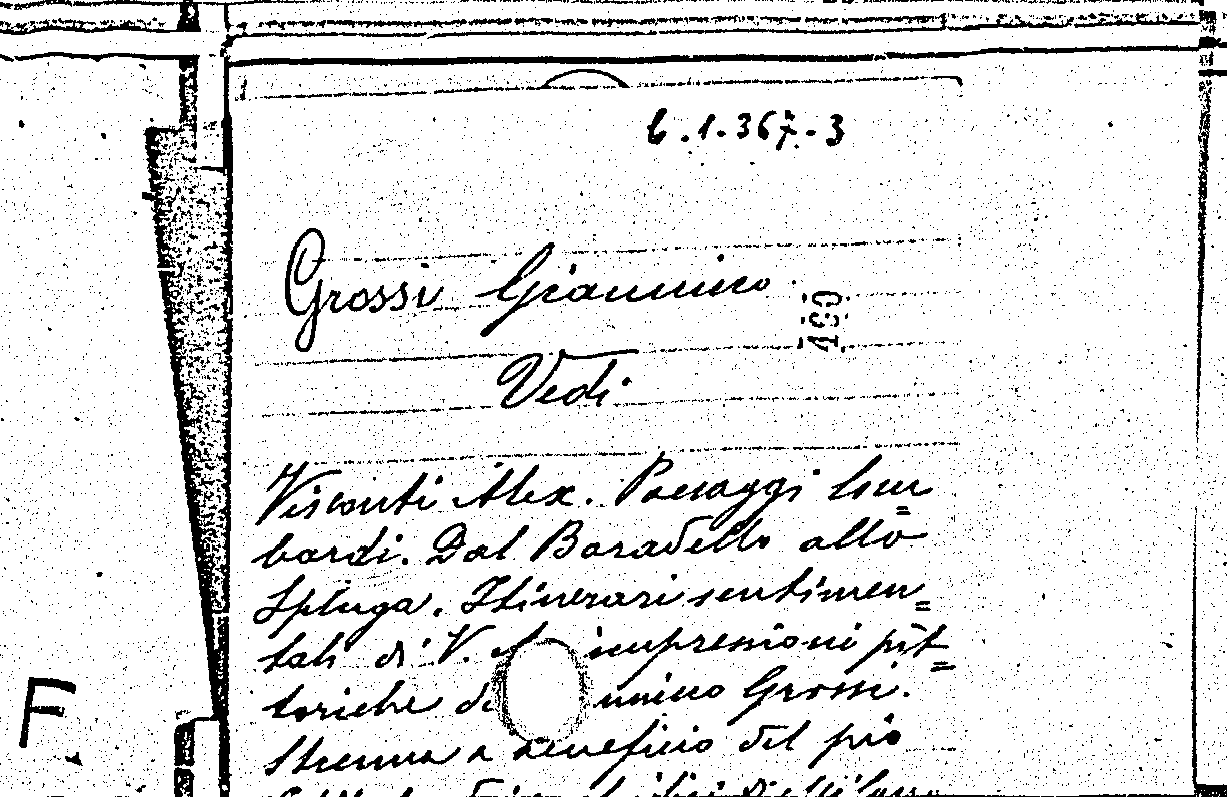 6.1.367.3
Grossi Giannino
199
Vedi
Visconti Alex. Paesaggi lom=
bardi. Dal Baradello allo
Spluga. Itinerari sentimen=
tali di V. impressioni pit=
toriche nnino Grossi.
Strenna a beneficio del pio
F